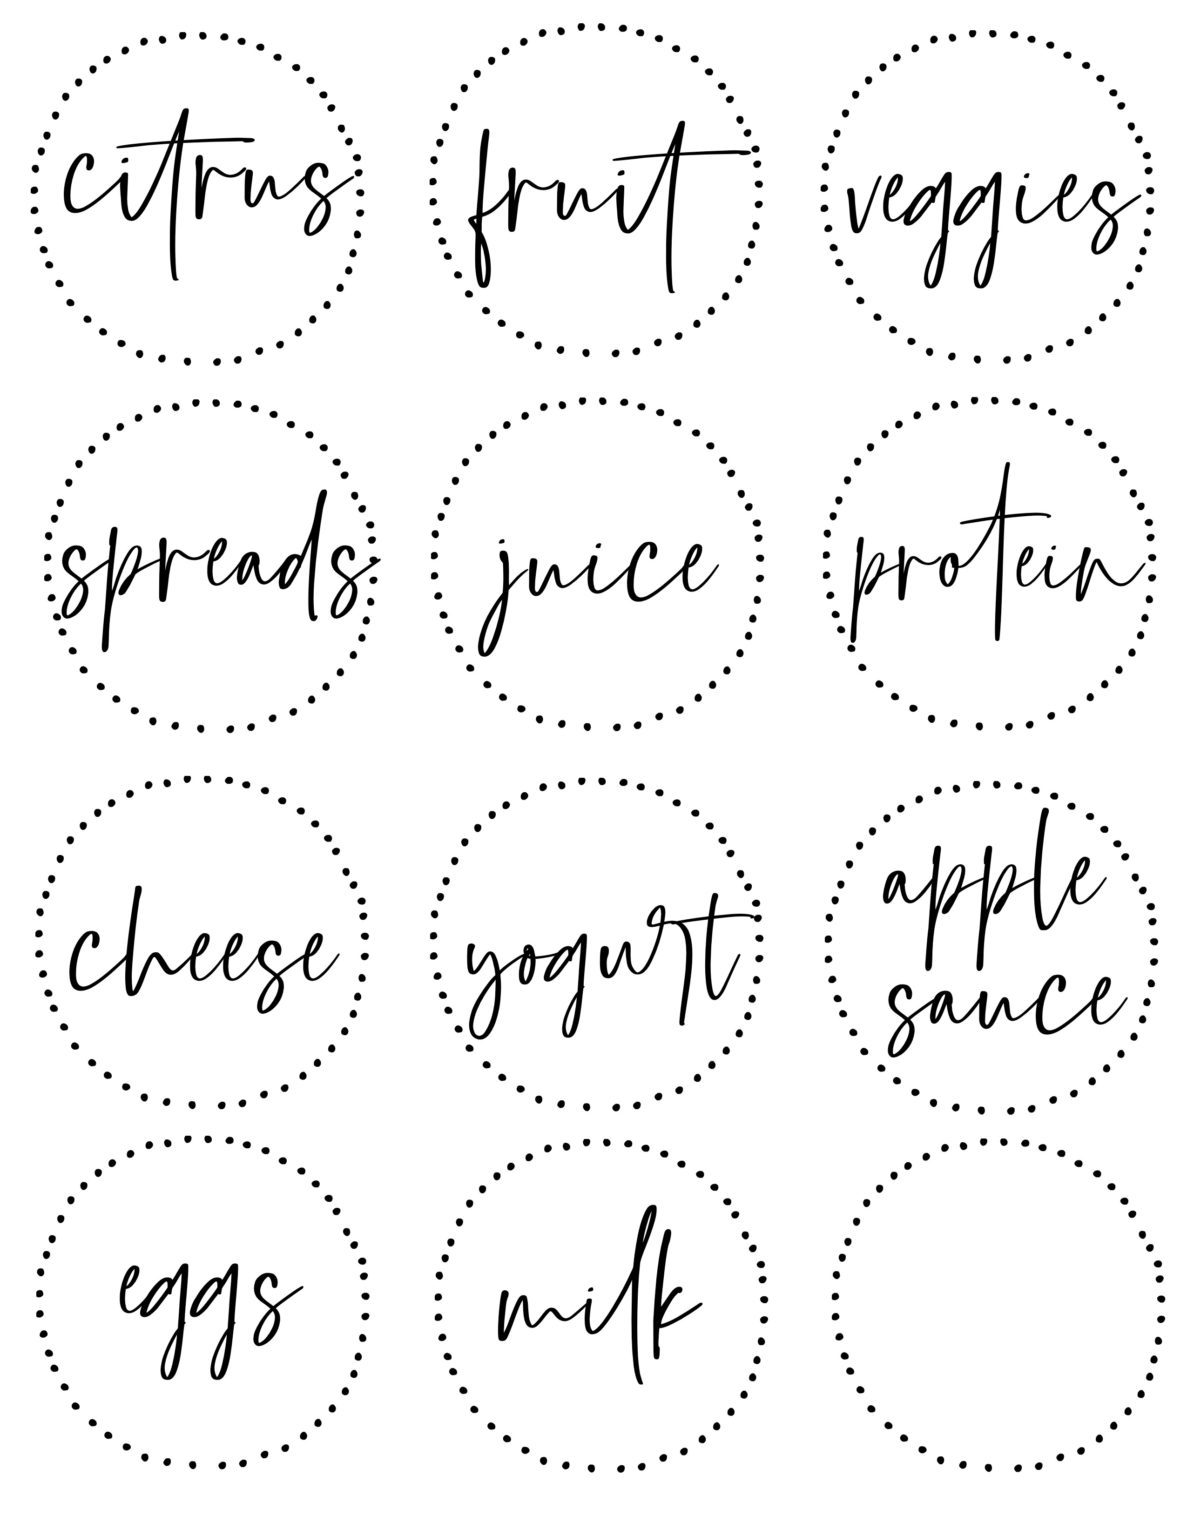 citrus
fruit
veggies
spreads
juice
protein
cheese
yogurt
apple
sauce
eggs
milk